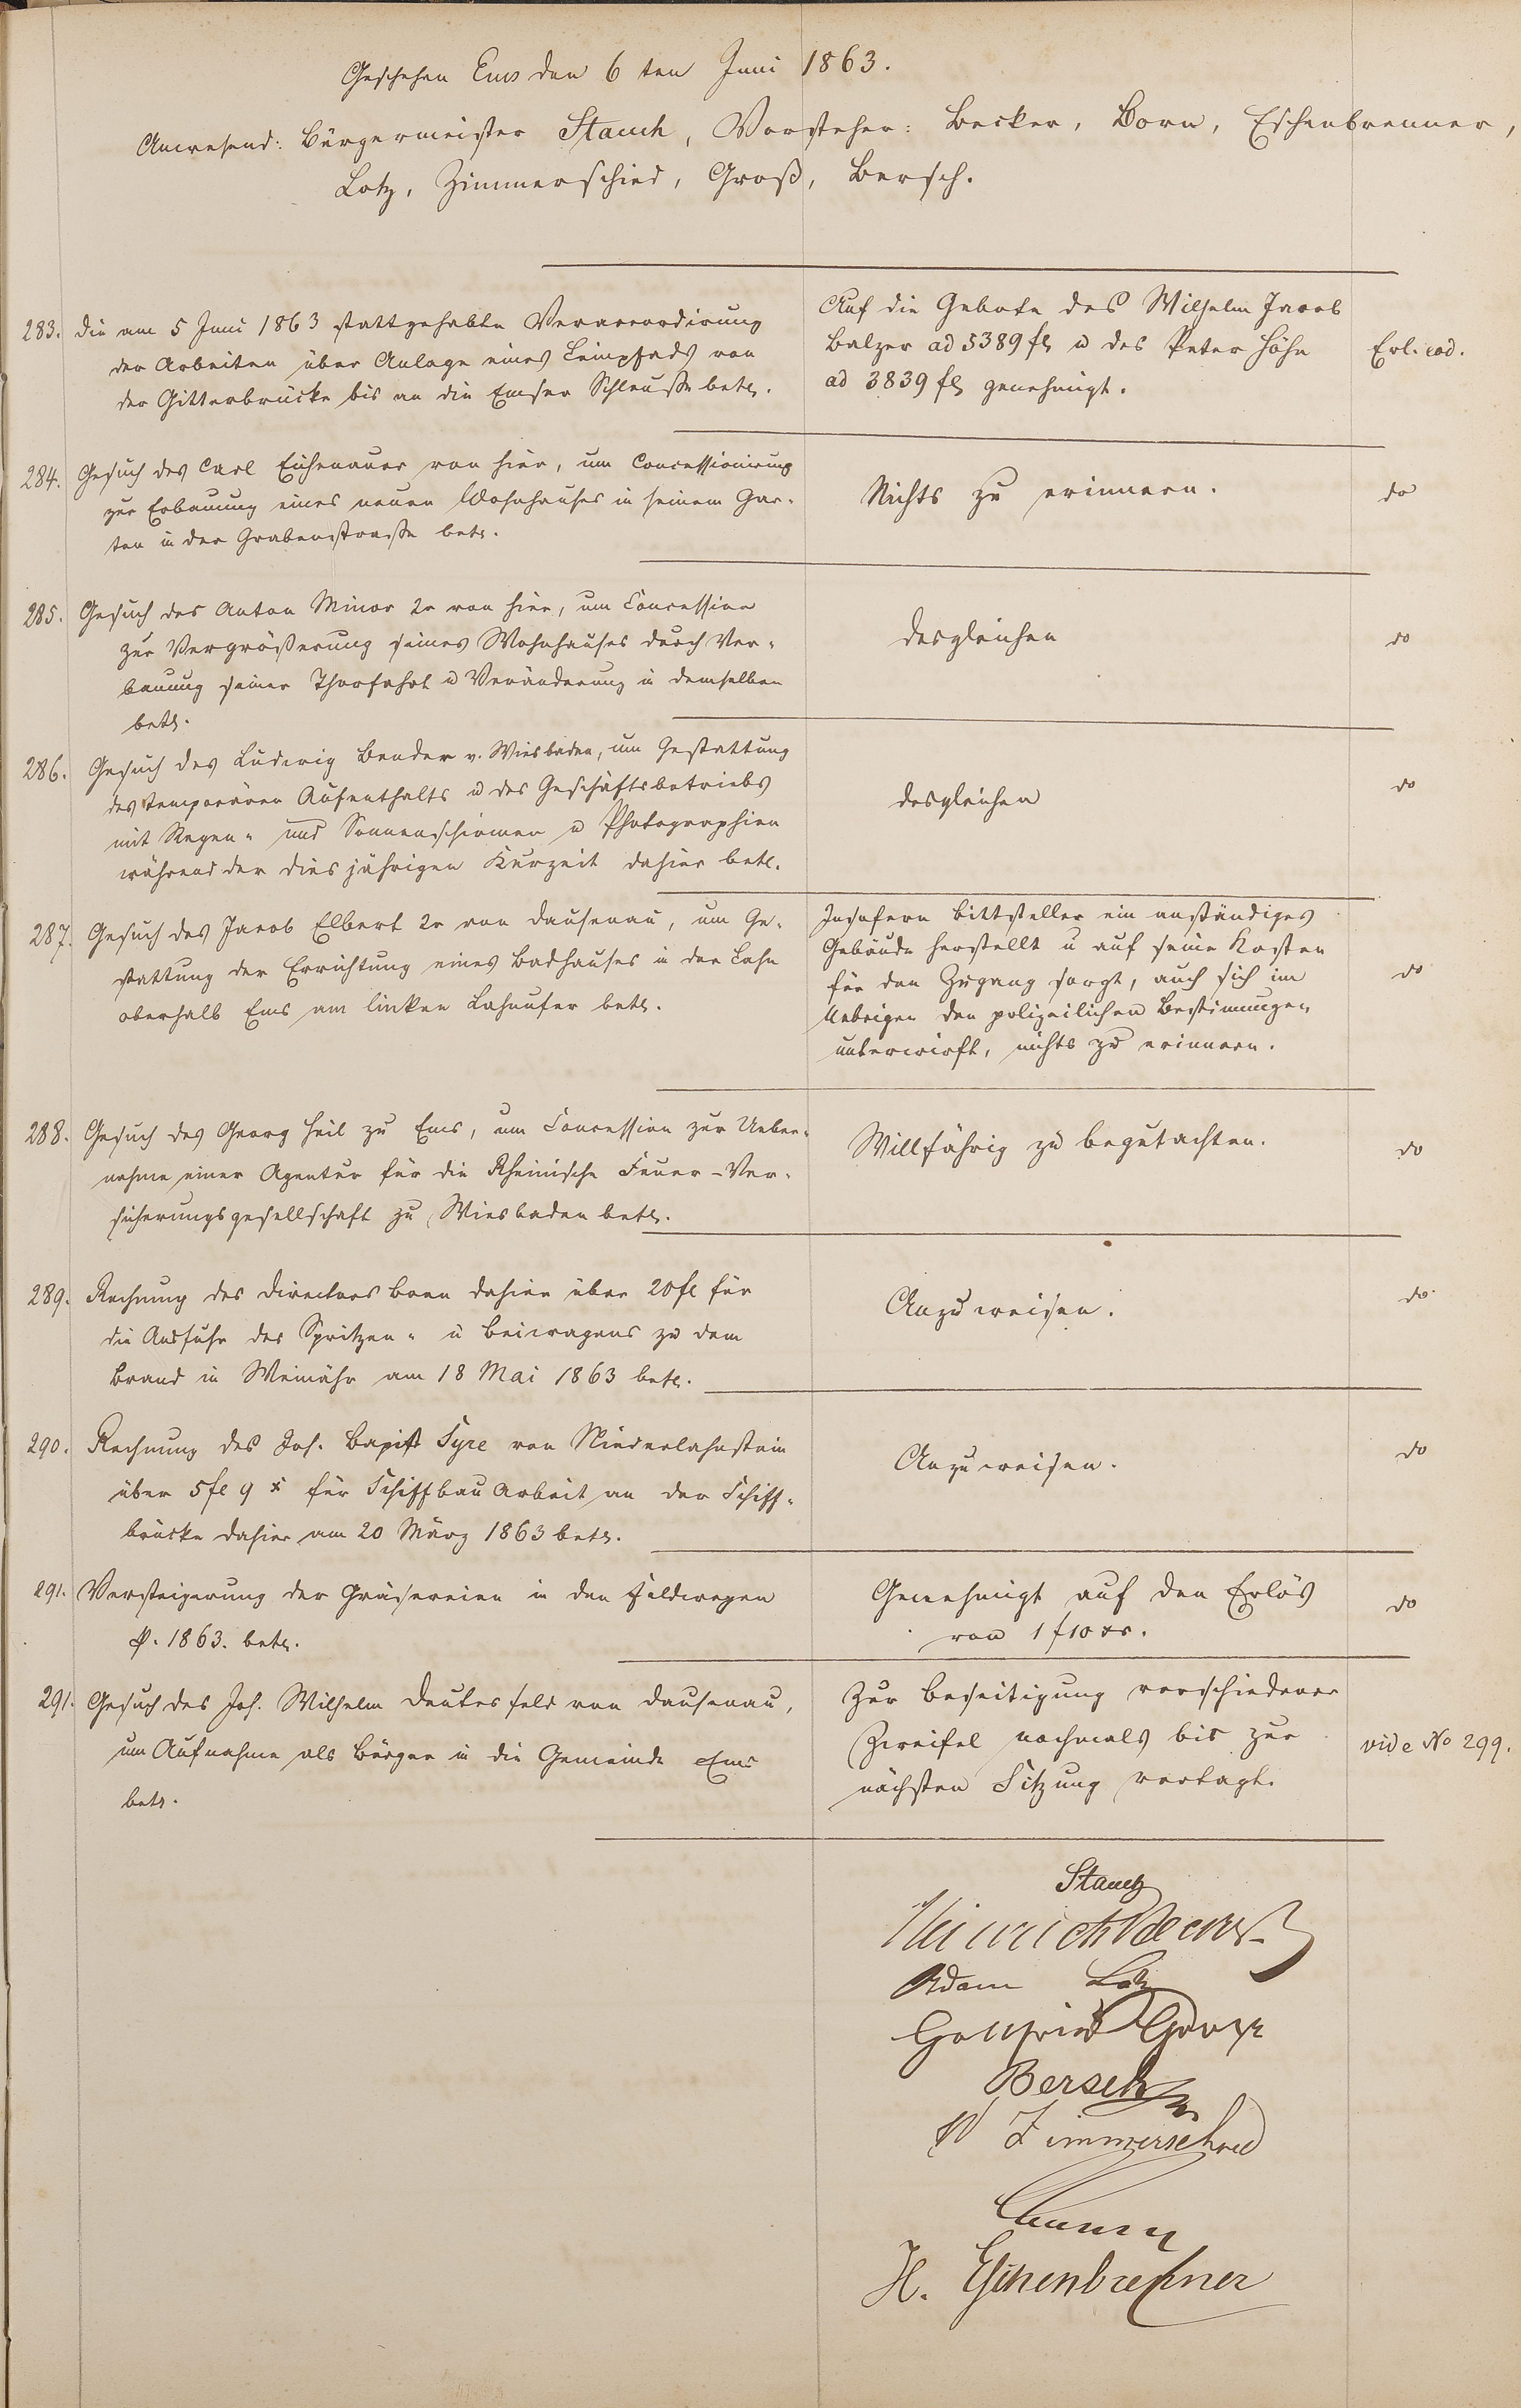 Geschehen Ems den 6 ten Juni 1863.
Anwesend: Bürgermeister Stauch, Vorsteher: Becker, Born, Eschenbrenner,
Lotz, Zimmerschied, Groß, Bersch.
283. Die am 5 Juni 1863 stattgehabte Veraccordirung
der Arbeiten über Anlage eines Leinpfads von
der Gitterbrücke bis an die Emser Schleuße betr.
Auf die Gebote des Wilhelm Jacob
Balzer ad 5389 fl u des Peter Höhn
ad 3839 fl genehmigt.
Erl. eod.
284. Gesuch des Carl Eichenauer von hier, um Concessionirung
zur Erbauung eines neuen Wohnhauses in seinem Gar-
ten in der Grabenstraße betr.
Nichts zu erinnern.
do
285. Gesuch des Anton Minor 2r von hier, um Concession
zur Vergrößerung seines Wohnhauses durch Ver-
bauung seiner Thorfahrt u Veränderung in demselben
betr.
desgleichen
do
286. Gesuch des Ludwig Bender v. Wiesbaden, um Gestattung
des temporären Aufenthalts u des Geschäftsbetriebs
mit Regen- und Sonnenschirmen u Photographien
während der diesjährigen Kurzeit dahier betr.
desgleichen
do
287. Gesuch des Jacob Elbert 2r von Dausenau, um Ge-
stattung der Errichtung eines Badhauses in der Lahn
oberhalb Ems am linken Lahnufer betr.
Insofern Bittsteller ein anständiges
Gebäude herstellt u auf seine Kosten
für den Zugang sorgt, auch sich im
Uebrigen den polizeilichen Bestimungen
unterwirft, nichts zu erinnern.
do
288. Gesuch des Georg Heil zu Ems, um Concession zur Ueber-
nahme einer Agentur für die Rheinische Feuer-Ver-
sicherungsgesellschaft zu Wiesbaden betr.
Willfährig zu begutachten.
do
289. Rechnung des Directors Born dahier über 20 fl für
die Ausfuhr des Spritzen- u Beiwagens zu dem
Brand in Weinähr am 18 Mai 1863 betr.
Anzuweisen.
do
290. Rechnung des Joh. Bapist Syre von Niederlahnstein
über 5 fl 9 x für Schiffbau Arbeit an der Schiff-
brücke dahier am 20 März 1863 betr.
Anzuweisen.
do
291. Versteigerung der Gräsereien in den Feldwegen
p. 1863. betr.
Genehmigt auf den Erlös
von 1 f 10 xr.
do
291. Gesuch des Joh. Wilhelm Deutesfeld von Dausenau,
um Aufnahme als Bürger in die Gemeinde Ems
betr.
Zur Beseitigung verschiedener
Zweifel nochmals bis zur
nächsten Sitzung vertagt.
vide No 299.
Stauch
Heinrich Becker
Adam Lotz
Gottfried Groß
Bersch
W Zimmerschied
H. Eschenbrenner